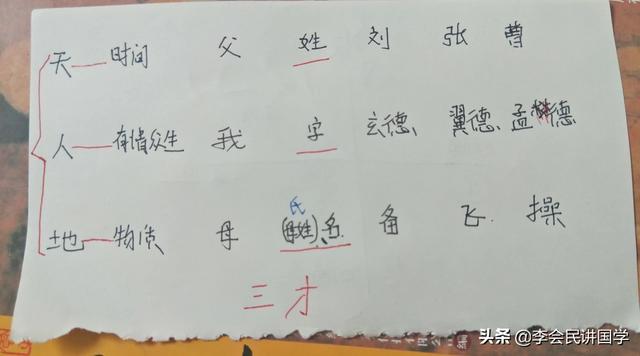 天 — 时间 父 姓 刘 张 曹
人 — 有情众生 我 字 玄德、翼德、孟德
氏
地 — 物质 母 (母姓)、名 备 飞. 操
三才
头条 @李会民讲国学